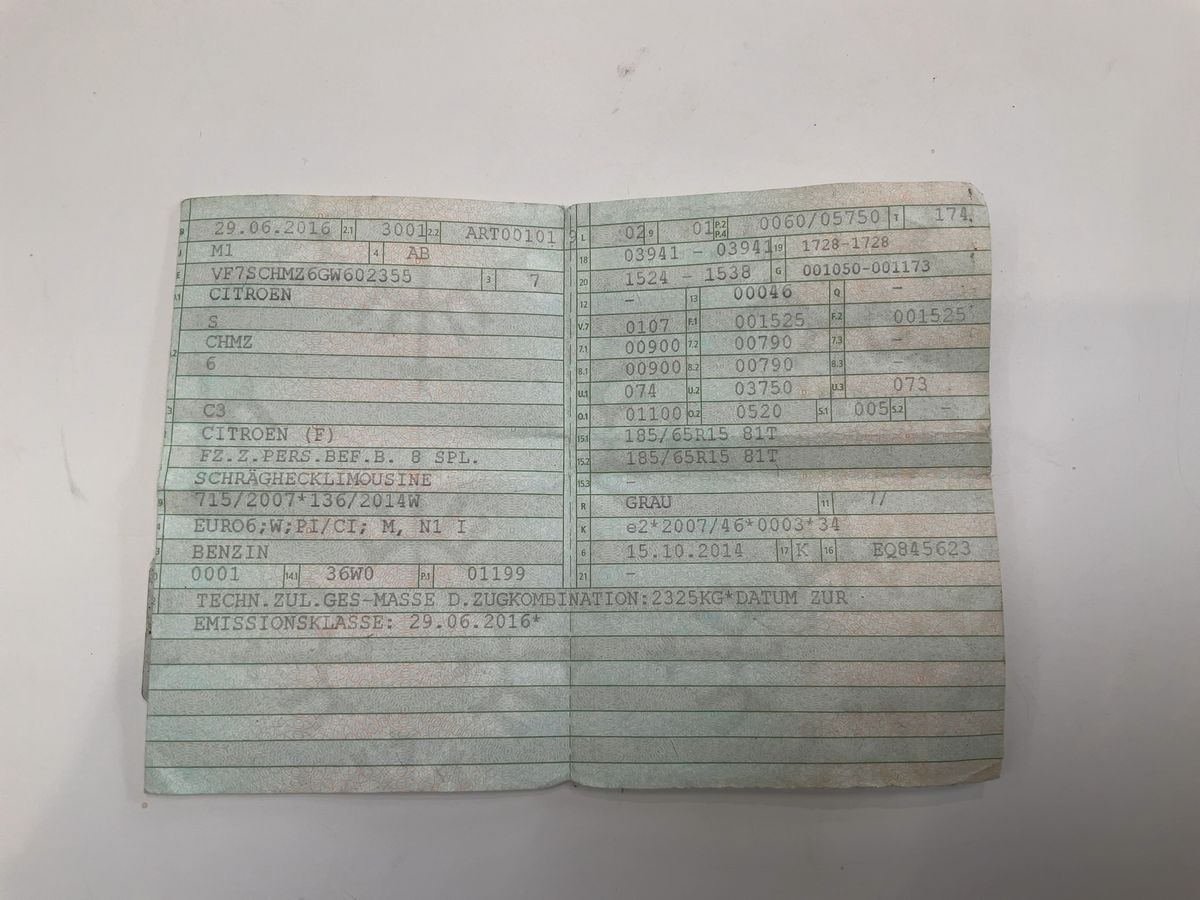 B 29.06.2016 2.1 3001 2.2 ART00101
J M1 4 AB
E VF7SCHMZ6GW602355 3 7
D.1 CITROEN
S
CHMZ
D.2 6
D.3 C3
CITROEN (F)
FZ.Z.PERS.BEF.B. 8 SPL.
SCHRÄGHECKLIMOUSINE
715/2007*136/2014W
EURO6;W;PI/CI; M, N1 I
BENZIN
0001 14.1 36W0 P.1 01199
L 02 9 01 P.2 P.4 0060/05750 T 174
18 03941 - 03941 19 1728-1728
20 1524 - 1538 G 001050-001173
12 - 13 00046 Q -
V.7 0107 F.1 001525 F.2 001525
7.1 00900 7.2 00790 7.3 -
8.1 00900 8.2 00790 8.3 -
U.1 074 U.2 03750 U.3 073
O.1 01100 O.2 0520 S.1 005 S.2 -
15.1 185/65R15 81T
15.2 185/65R15 81T
15.3 -
R GRAU 11 7/
K e2*2007/46*0003*34
6 15.10.2014 17 K 16 EQ845623
21 -
TECHN.ZUL.GES-MASSE D.ZUGKOMBINATION:2325KG*DATUM ZUR
EMISSIONSKLASSE: 29.06.2016*